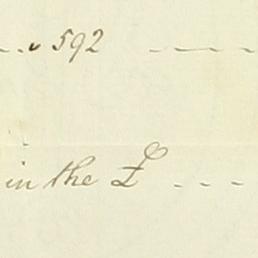 592
in the £